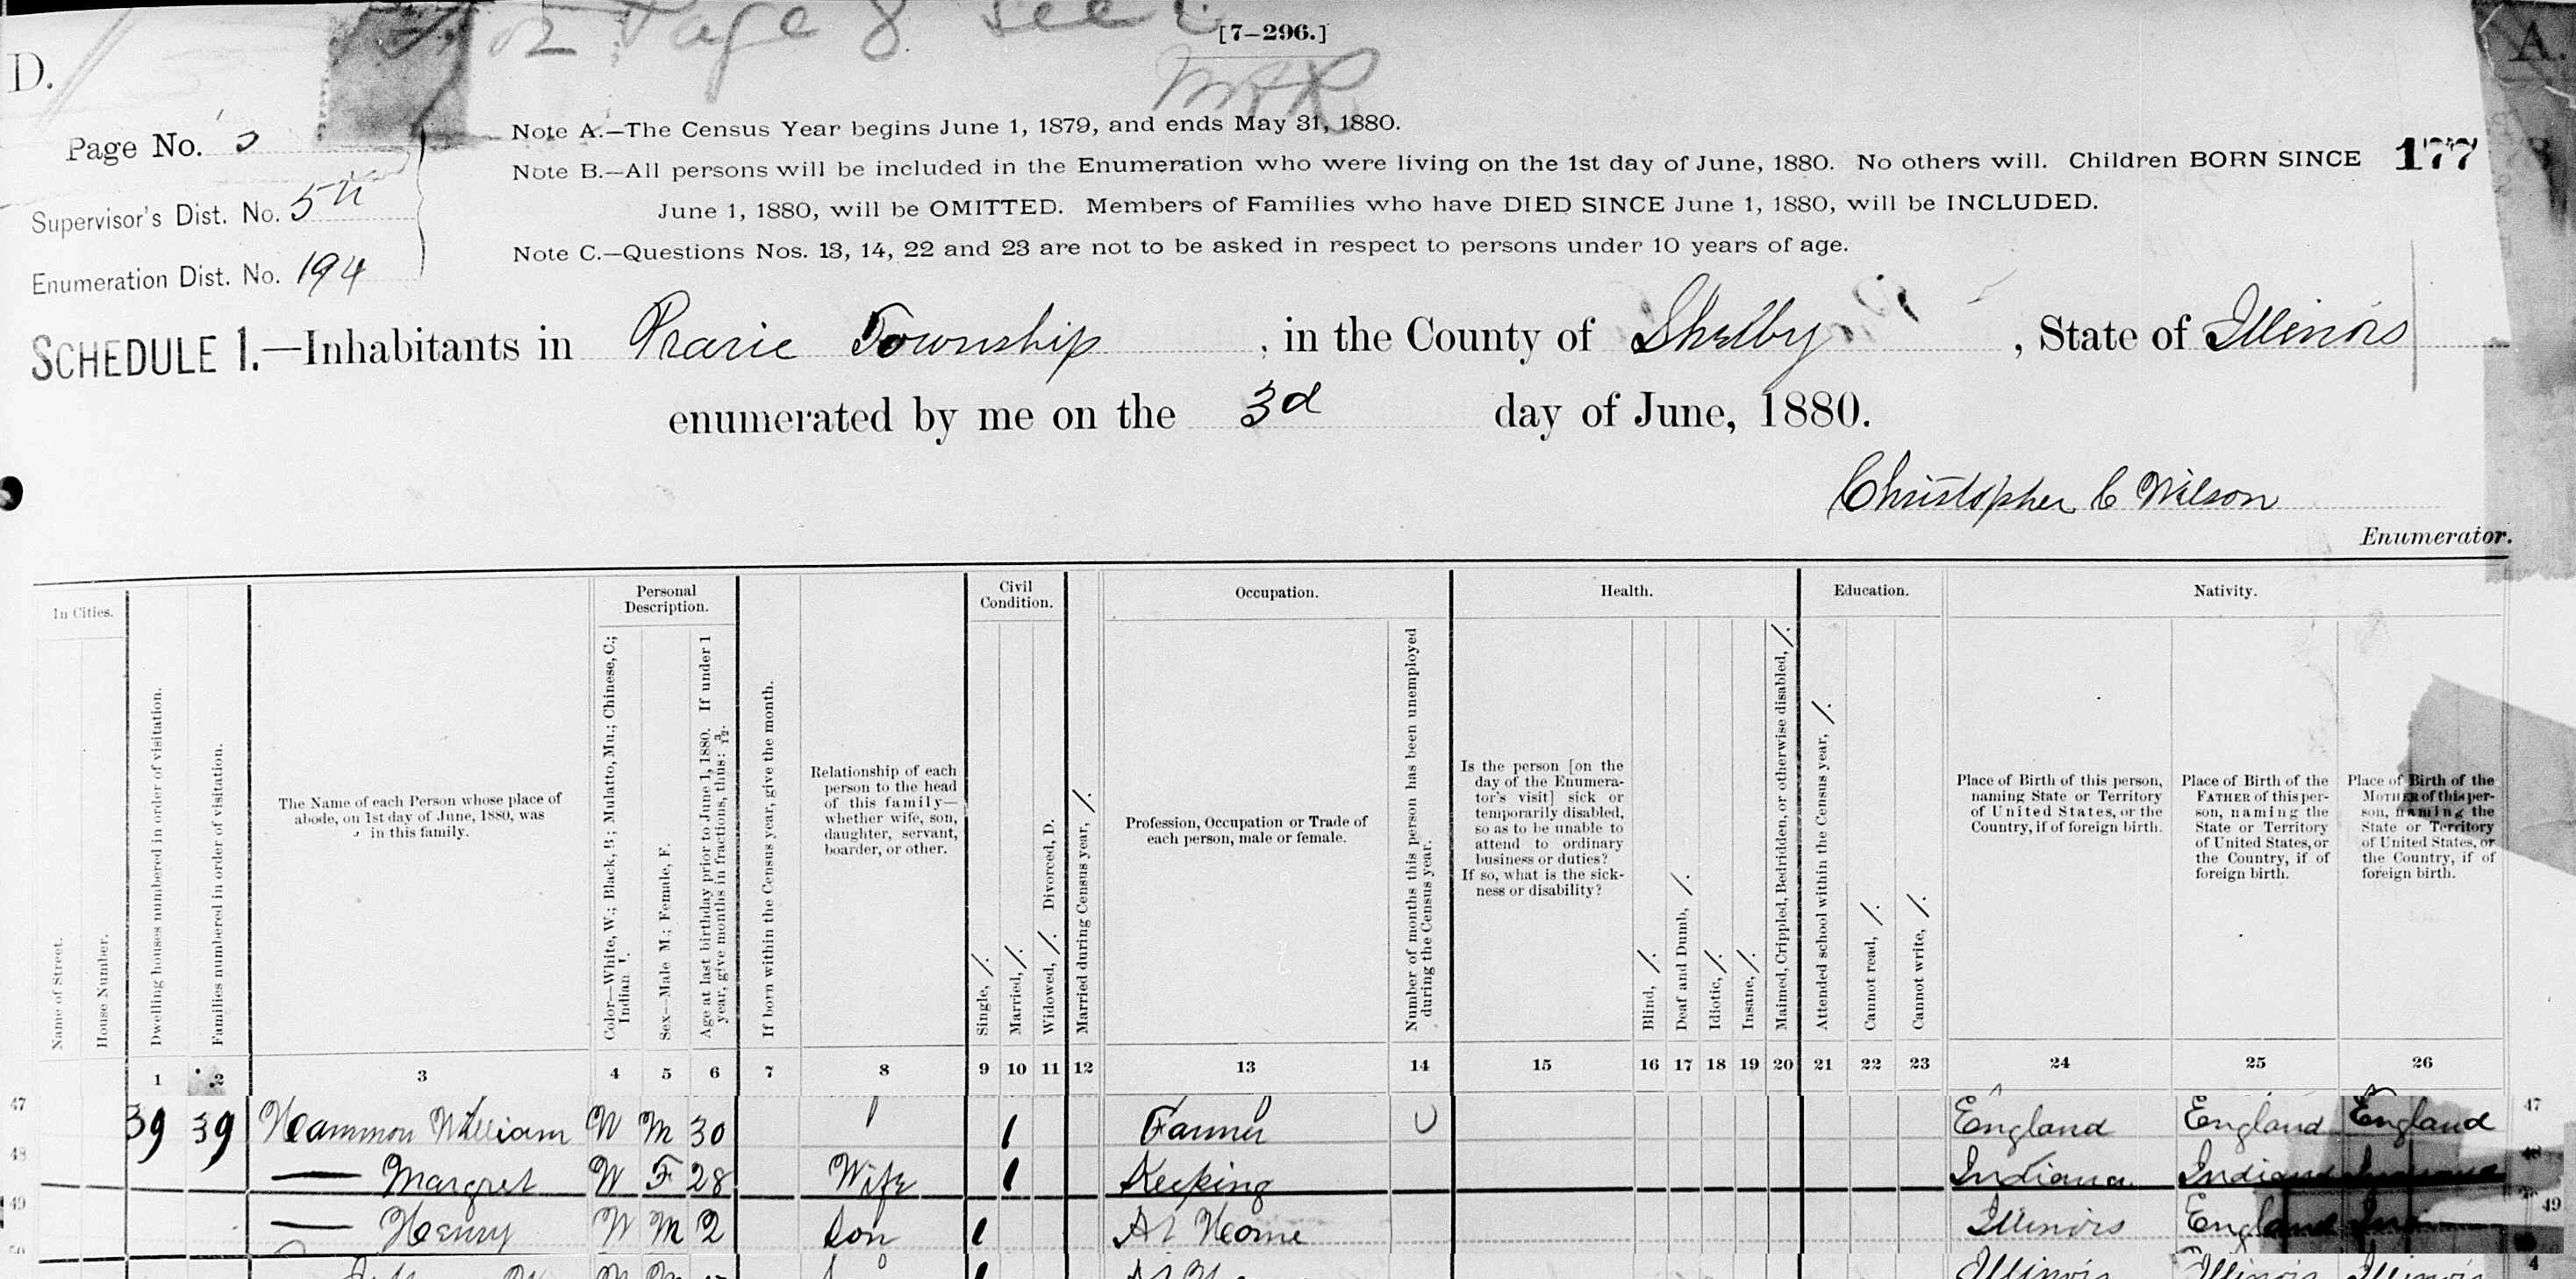 Page 8 see
[7-296.]
D.
A.
Note A.—The Census Year begins June 1, 1879, and ends May 31, 1880.
Page No.
Note B.—All persons will be included in the Enumeration who were living on the 1st day of June, 1880. No others will. Children BORN SINCE
177
June 1, 1880, will be OMITTED. Members of Families who have DIED SINCE June 1, 1880, will be INCLUDED.
Supervisor's Dist. No. 5th
Note C.—Questions Nos. 13, 14, 22 and 23 are not to be asked in respect to persons under 10 years of age.
Enumeration Dist. No. 194
SCHEDULE 1.—Inhabitants in Prarie Township, in the County of Shelby, State of Illinois
enumerated by me on the 3d day of June, 1880.
Christopher C Wilson
Enumerator.
In Cities.
Name of Street.
House Number.
Dwelling houses numbered in order of visitation.
Families numbered in order of visitation.
The Name of each Person whose place of
abode, on 1st day of June, 1880, was
in this family.
Personal
Description.
Color—White, W.; Black, B.; Mulatto, Mu.; Chinese, C.;
Indian, I.
Sex—Male M.; Female, F.
Age at last birthday prior to June 1, 1880. If under 1
year, give months in fractions, thus: 3/12.
If born within the Census year, give the month.
Relationship of each
person to the head
of this family—
whether wife, son,
daughter, servant,
boarder, or other.
Civil
Condition.
Single, /.
Married, /.
Widowed, /. Divorced, D.
Married during Census year, /.
Occupation.
Profession, Occupation or Trade of
each person, male or female.
Number of months this person has been unemployed
during the Census year.
Health.
Is the person [on the
day of the Enumera-
tor's visit] sick or
temporarily disabled,
so as to be unable to
attend to ordinary
business or duties?
If so, what is the sick-
ness or disability?
Blind, /.
Deaf and Dumb, /.
Idiotic, /.
Insane, /.
Maimed, Crippled, Bedridden, or otherwise disabled, /.
Education.
Attended school within the Census year, /.
Cannot read, /.
Cannot write, /.
Nativity.
Place of Birth of this person,
naming State or Territory
of United States, or the
Country, if of foreign birth.
Place of Birth of the
FATHER of this per-
son, naming the
State or Territory
of United States, or
the Country, if of
foreign birth.
Place of Birth of the
MOTHER of this per-
son, naming the
State or Territory
of United States, or
the Country, if of
foreign birth.
1 2 3 4 5 6 7 8 9 10 11 12 13 14 15 16 17 18 19 20 21 22 23 24 25 26
47 39 39 Hammon William W M 30 / Farmer England England England 47
48 — Margret W F 28 Wife / Keeping Indiana Indiana 48
49 — Henry W M 2 Son / At Home Illinois England 49
Illinois Illinois Illinois